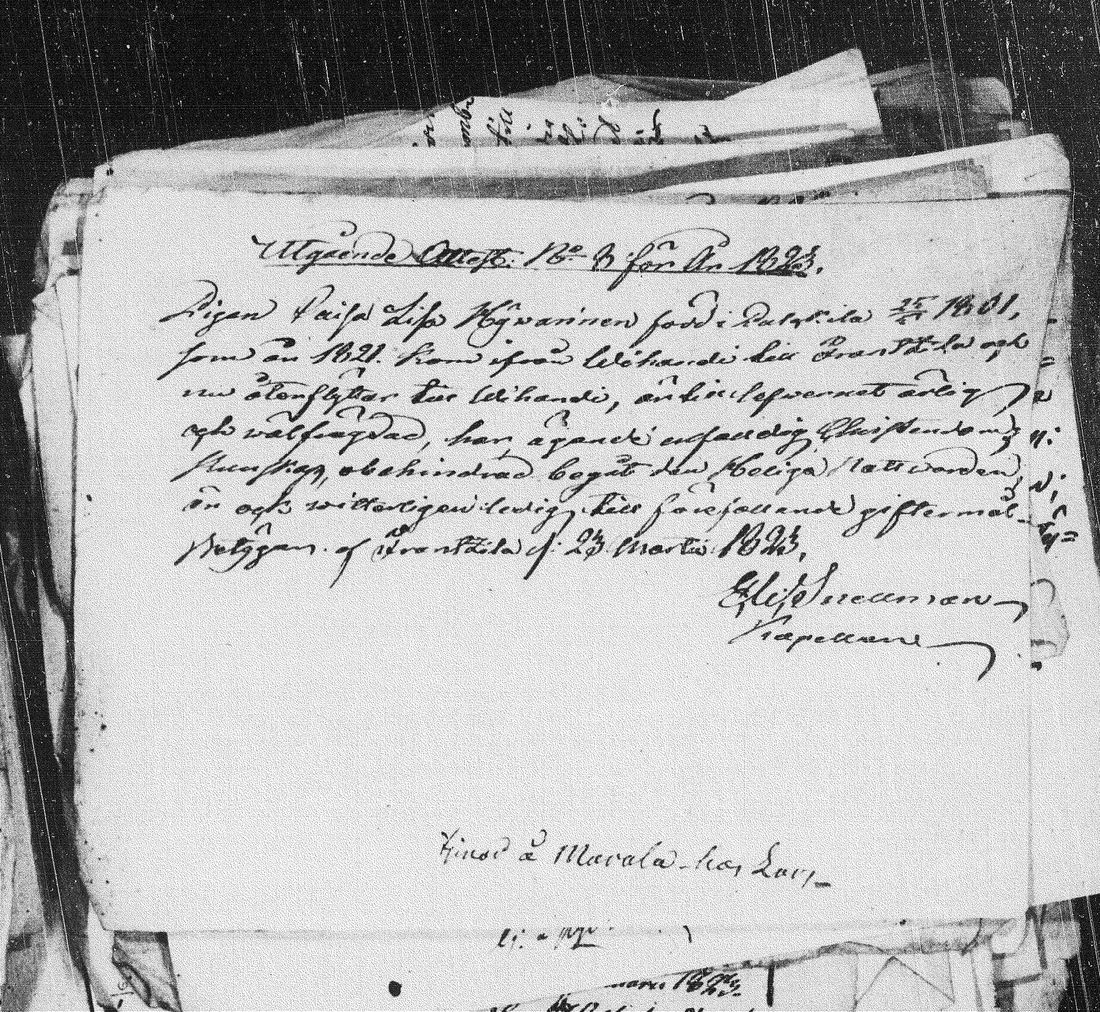 Utgående Attest. No 8 för År 1823.
Pigan Caisa Lisa Hyvärinen född i Pulkkila 25/11 1801,
som år 1821. kom ifrån Wihandi till Frantzila och
nu återflyttar till Wihandi, är till lefvernet ärlig
och wälfrägdad, har ägande enfaldig Christendoms
kunskap, obehindrad begåt den Heliga Nattwarden,
är ock witterligen ledig till förefallande giftermål
Betygar. af Frantzila d: 23 Martii 1823,
Elis Snellman
Kapellan
å Marala hos Lars